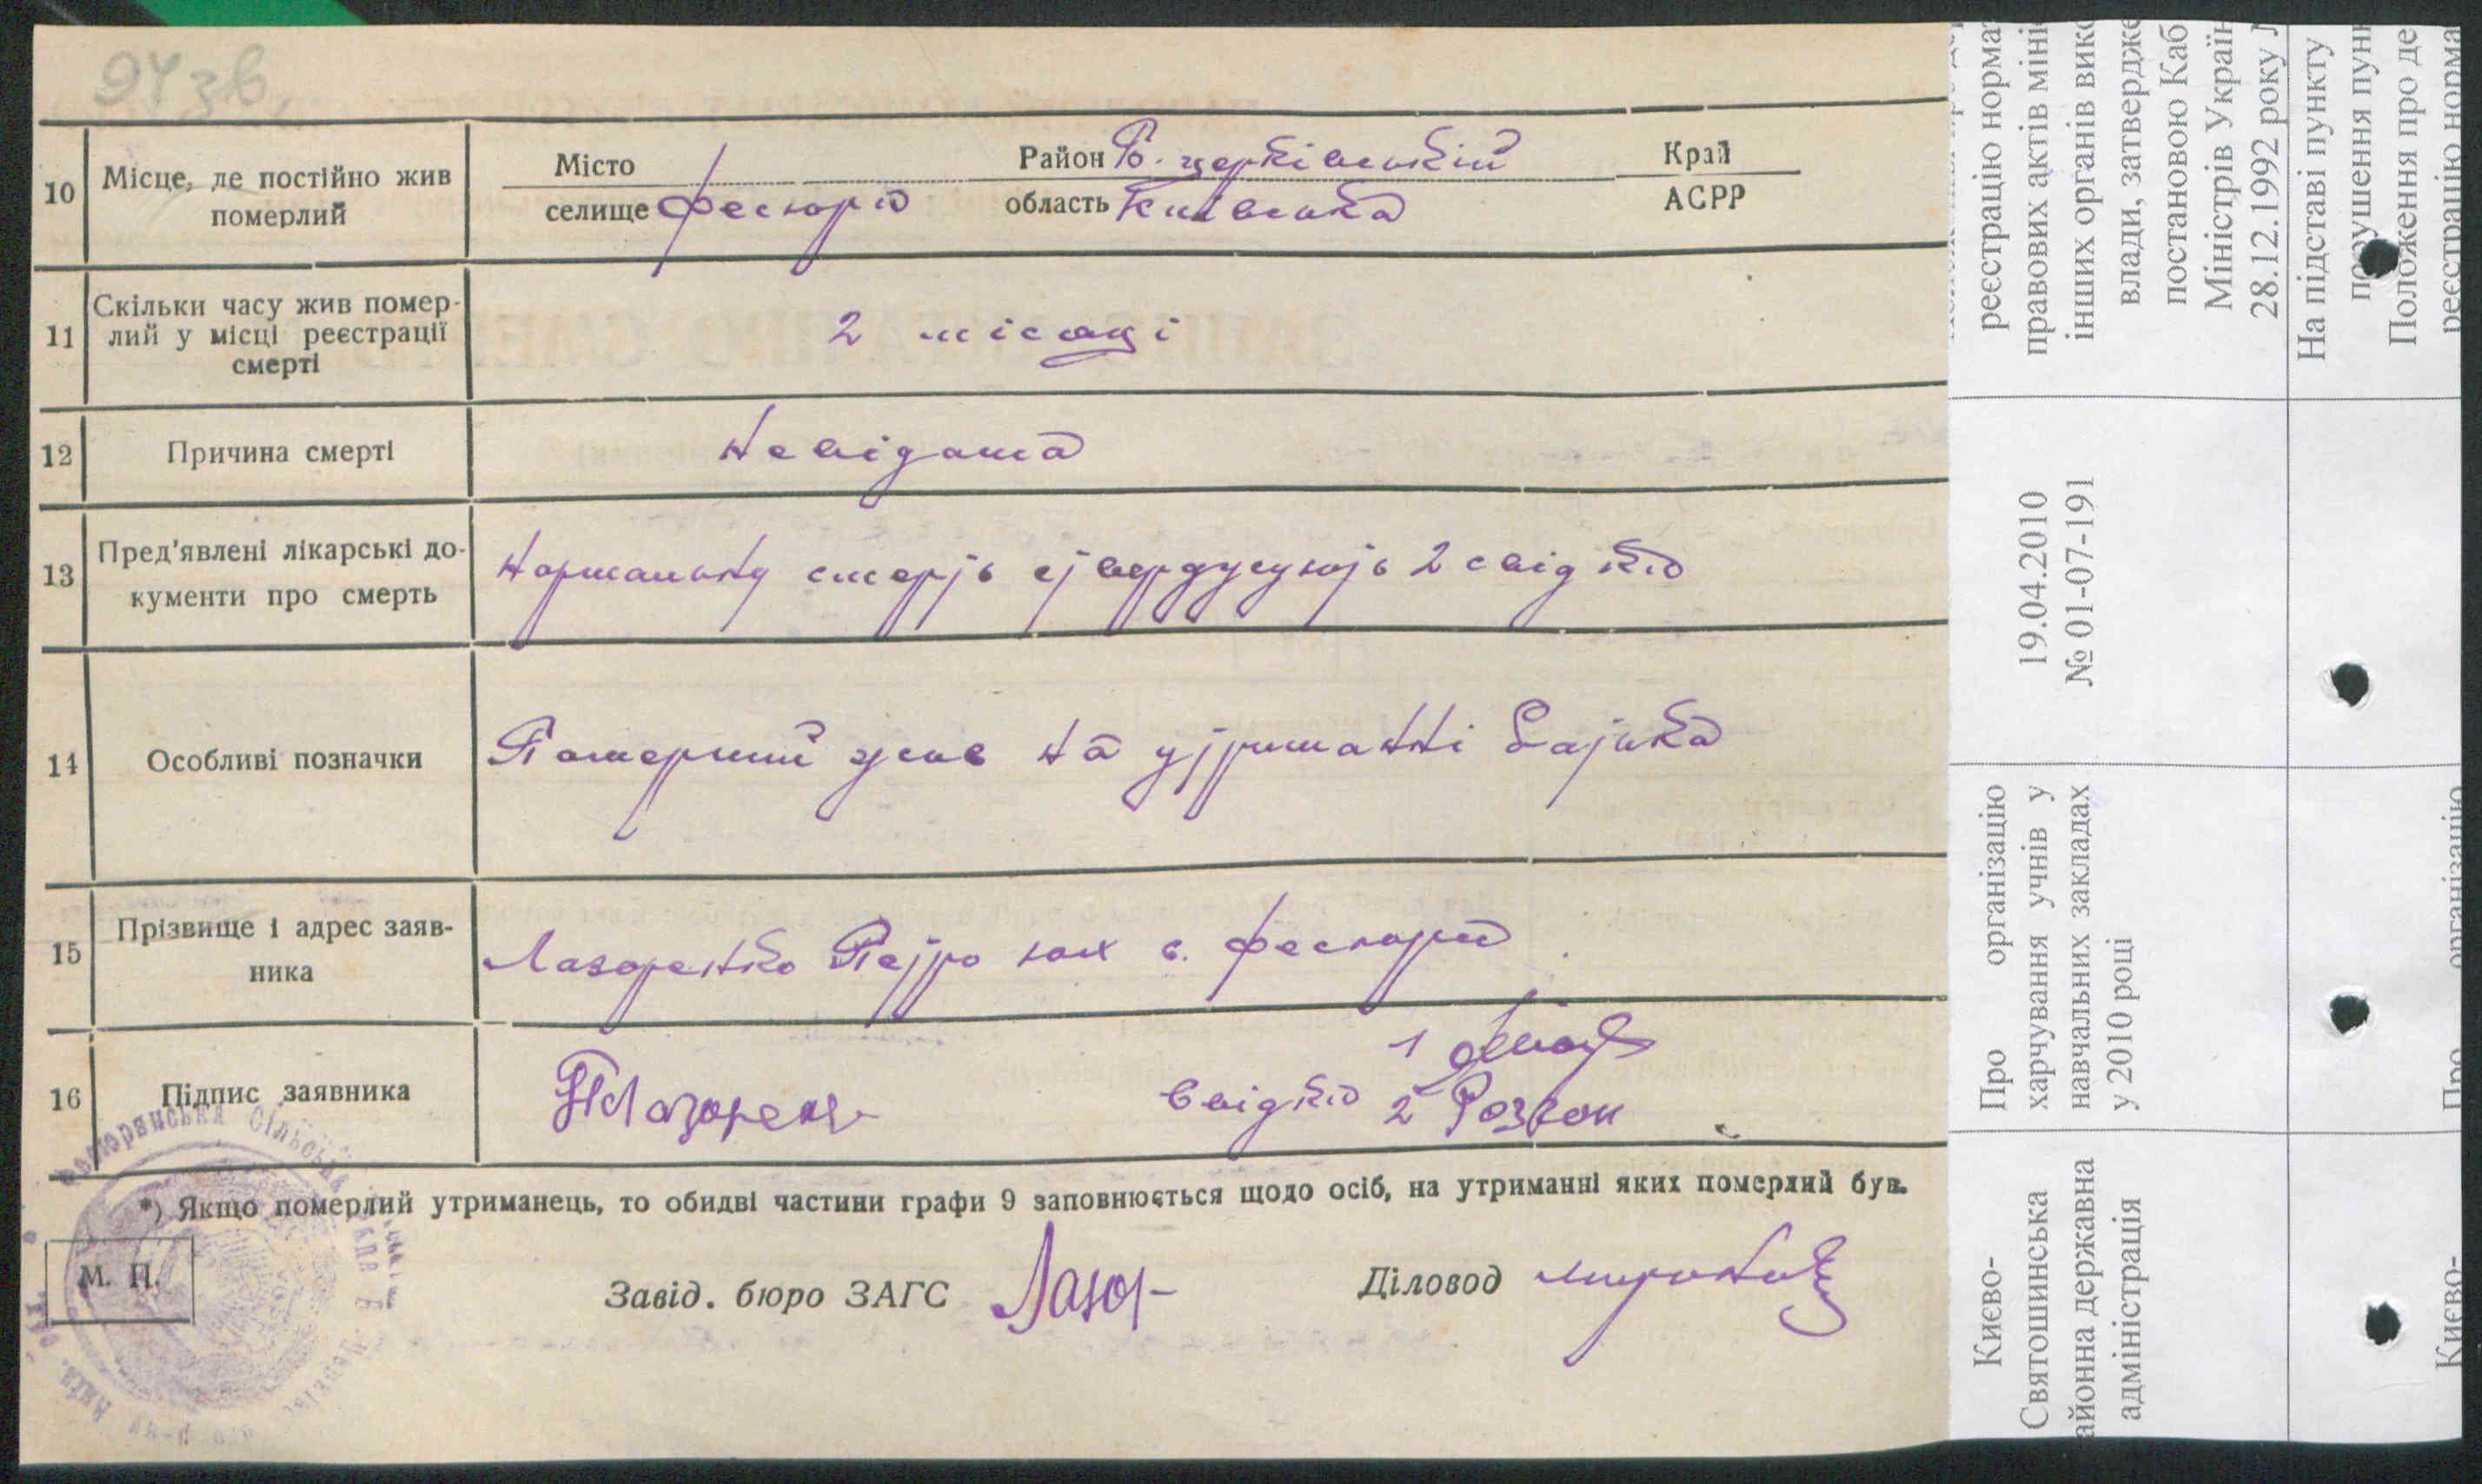 94 зв.
10 Місце, де постійно жив померлий
Місто Район Б. церківський Край
селище Фесюри область Київська АСРР
11 Скільки часу жив помер-
лий у місці реєстрації
смерті
2 місяці
12 Причина смерті
Невідома
13 Пред'явлені лікарські до-
кументи про смерть
Нормальну смерть стверджують 2 свідки
14 Особливі позначки
Померший жив на утриманні батька
15 Прізвище і адрес заяв-
ника
Лазоренко Петро с. Фесюри
16 Підпис заявника
1
Свідки 2 Розгон
*) Якщо померлий утриманець, то обидві частини графи 9 заповнюється щодо осіб, на утриманні яких померлий був.
М. П.
Завід. бюро ЗАГС Лазор
Діловод
реєстрацію норма
правових актів міні
інших органів вико
влади, затвердже
постановою Каб
Міністрів Україн
28.12.1992 року
На підставі пункту
порушення пунк
Положення про де
реєстрацію норма
19.04.2010
№ 01-07-191
Про організацію
харчування учнів у
навчальних закладах
у 2010 році
організацію
Про
Києво-
Святошинська
айонна державна
адміністрація
Києво-